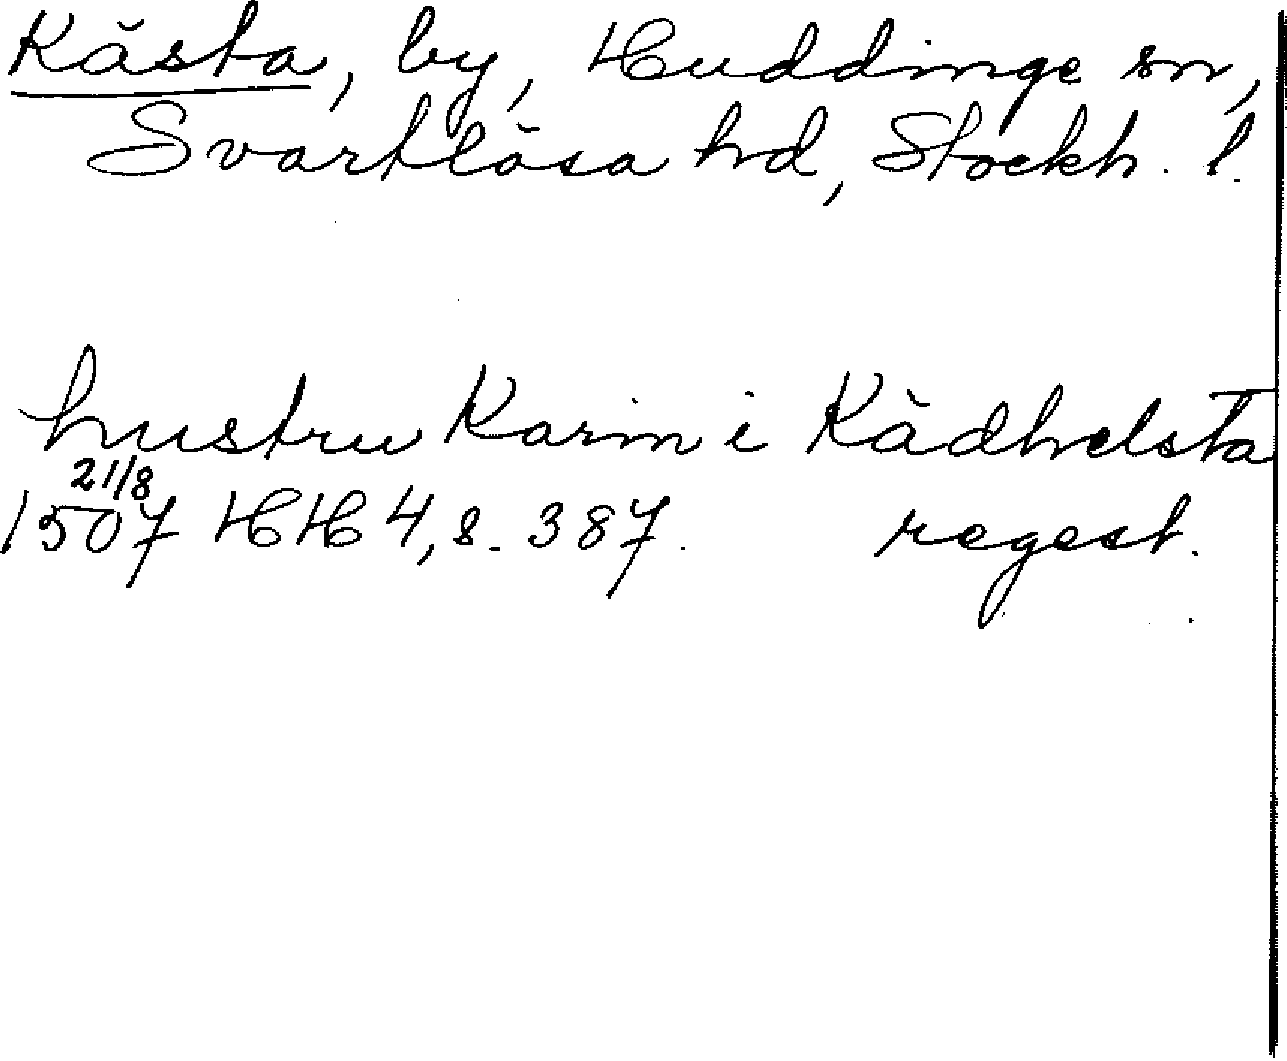 Kästa, by, Huddinge sn,
Svartlösa hd, Stockh. l.
hustru Karin i Kädhelsta
21/8
1507 HH 4, s. 387. regest.